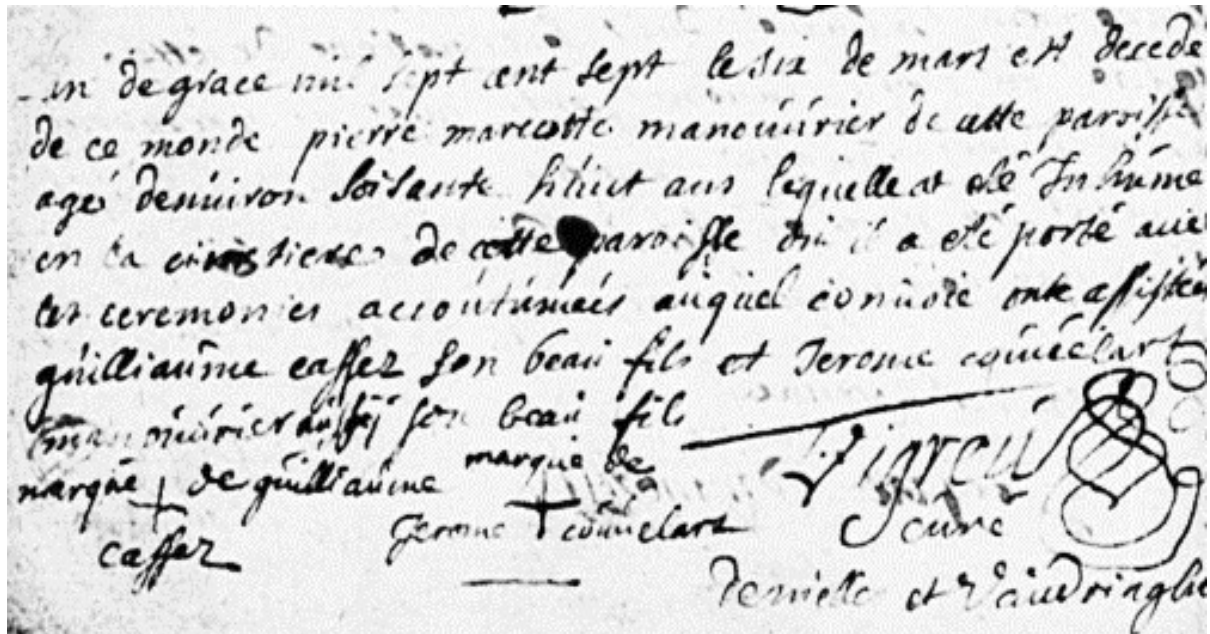 an de grace mil sept cent sept le six de mars est decede
de ce monde pierre marcotte manouürier de cette paroisse
agé denüiron soisante hüict ans lequelle at esté Inhümé
en la cimetiere de cette paroisse ou il a esté porté avec
les ceremonies accoütümées aüquel conüoie onte assistés
güilliaüme caffez son beaü fils et Jerome coüüelart
manoüürier aüssÿ son beaü fils
marque de güilliaüme marqüe de Vigreü
caffez Jerome coüüelart cüré
de nielle et